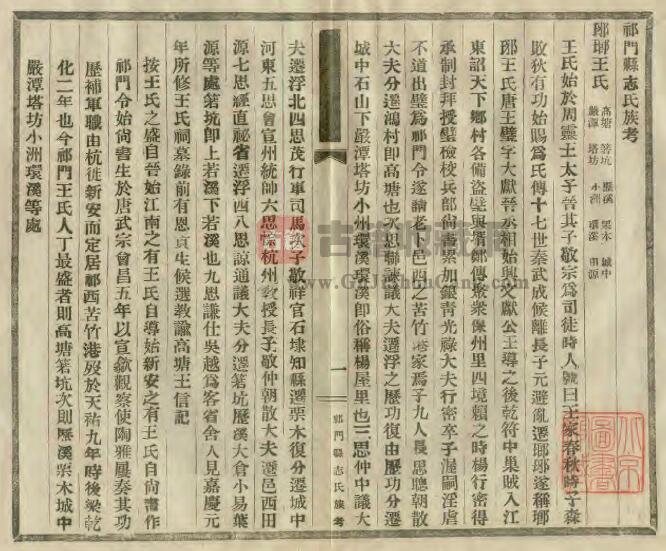 祁門縣志氏族考
瑯琊王氏 高塘 箬坑 歷溪 栗木 城中 嚴潭 塔坊 小洲 環溪
王氏始於周靈王太子晉其子敬宗為司徒時人號曰王家春秋時子森
敗狄有功始賜為氏傳十七世秦武成候離長子元避亂遷瑯琊遂稱瑯
琊王氏唐王璧字大獻晉丞相始興文獻公王導之後乾符中巢賊入江
東詔天下鄉村各備盜璧與壻鄭傳聚衆保州里四境賴之時楊行密得
承制封拜授璧檢校兵部尙書累加銀青光祿大夫行密卒子渥嗣淫虐
不道出璧為祁門令遂請老卜邑西之苦竹港家焉子九人長思聰朝散
大夫分遷鴻村即高塘也次思聯諫議大夫遷浮之歷功復由歷功分遷
城中石山下嚴潭塔坊小州環溪環溪即俗稱楊屋里也三思仲中議大
夫遷浮北四思茂行軍司馬次子敬祥官石埭知縣遷栗木復分遷城中
河東五思會宣州統帥六思 杭州教授長子敬仲朝散大夫遷邑西田
源七思經直祕省遷浮西八思諒通議大夫分遷箬坑歷溪大倉小易葉
源等處箬坑即上若溪下若溪也九思謙仕吳越為客省舍人見嘉慶元
年所修王氏祠墓錄前有恩貢生候選教諭高塘王信記
按王氏之盛自晉始江南之有王氏自導始新安之有王氏自尙書作
祁門令始尙書生於唐武宗會昌五年以宣歙觀察使陶雅屢奏其功
歷補軍職由杭徙新安而定居祁西苦竹港歿於天祐九年時後梁乾
化二年也今祁門王氏人丁最盛者則高塘箬坑次則歷溪栗木城中
嚴潭塔坊小洲環溪等處
一
祁門縣志氏族考